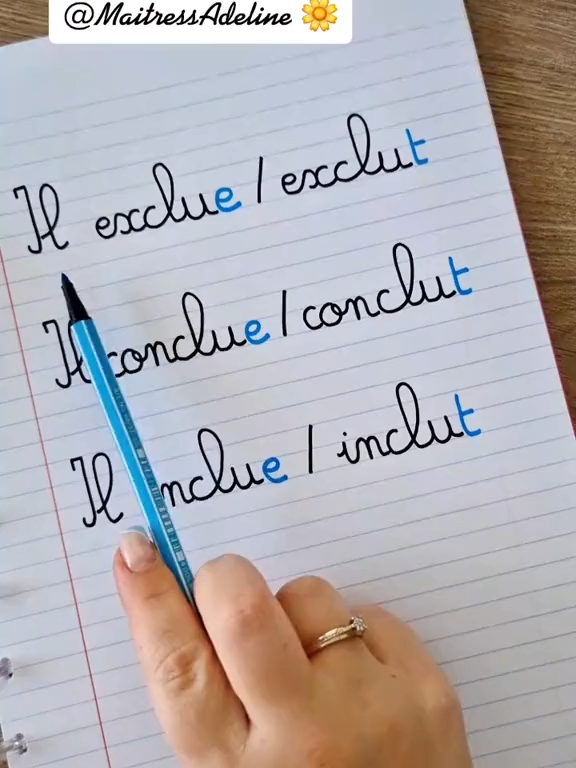 @MaitressAdeline 🌼
Il exclue / exclut
Il conclue / conclut
Il inclue / inclut